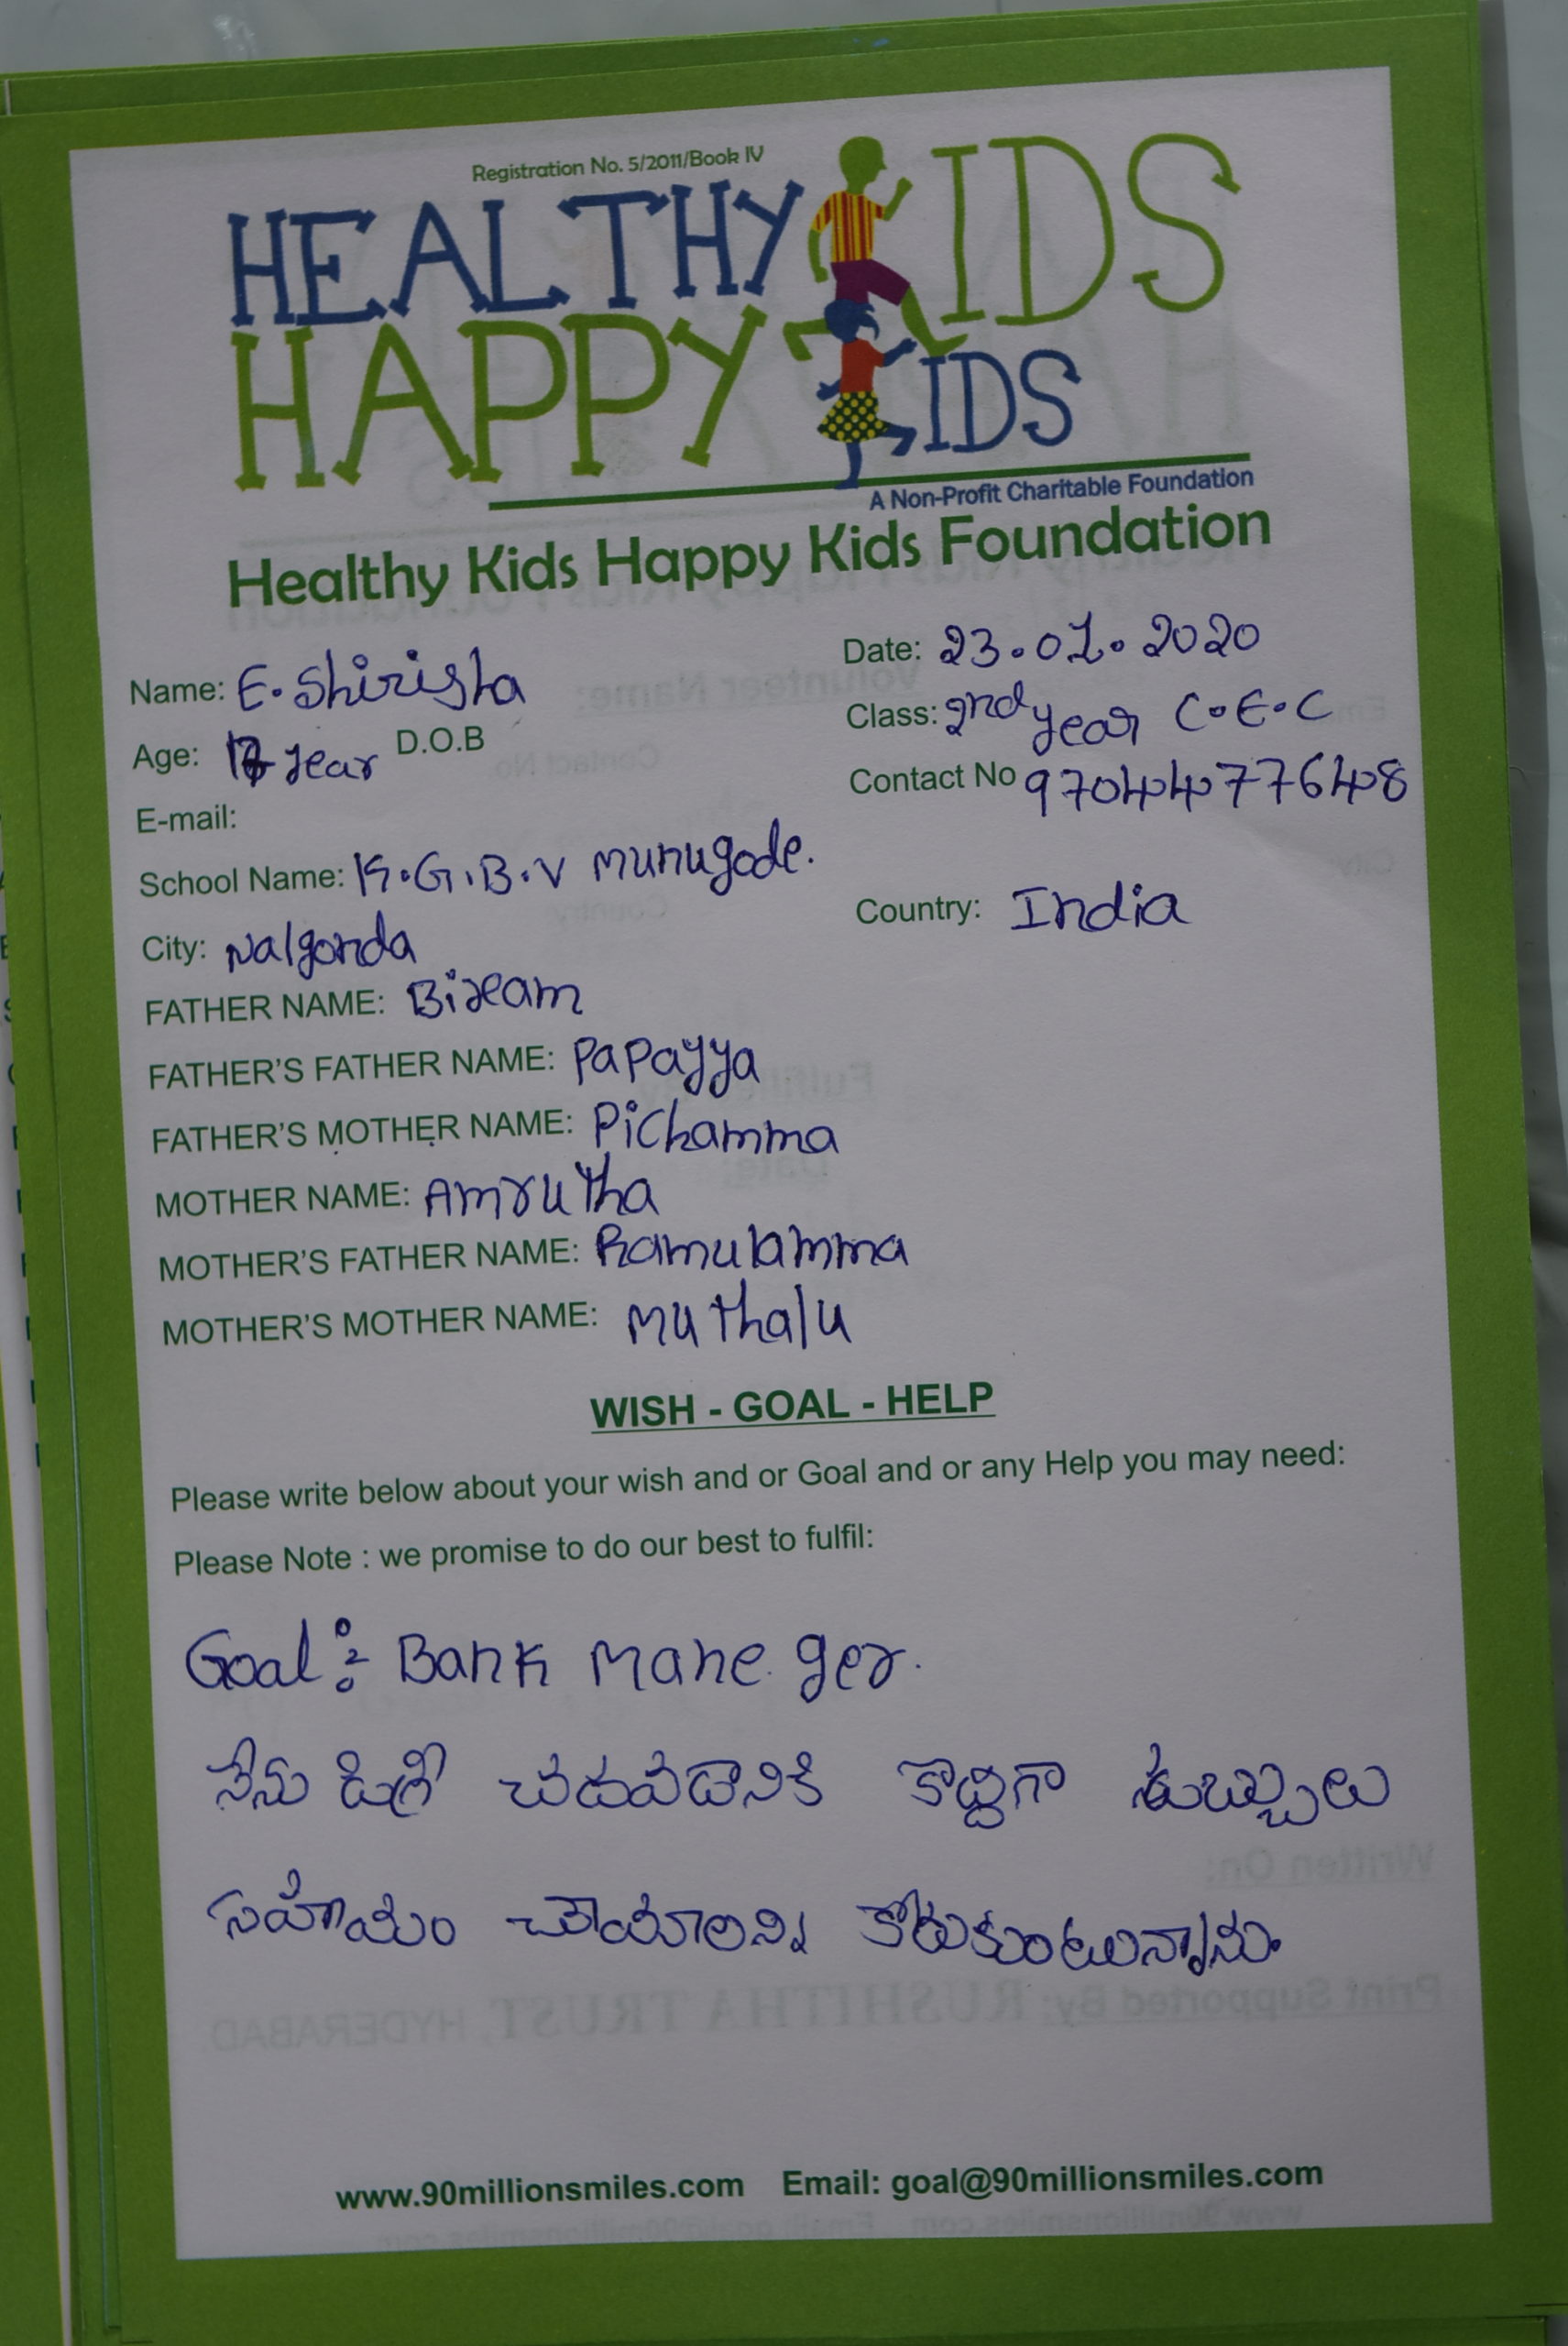 Registration No. 5/2011/Book IV
HEALTHY KIDS
HAPPY KIDS
A Non-Profit Charitable Foundation
Healthy Kids Happy Kids Foundation
Name: E. Shirisha Date: 23.01.2020
Age: year D.O.B Class: 2nd year C.E.C
E-mail: Contact No 9704477648
School Name: K.G.B.V munugode.
City: Nalgonda Country: India
FATHER NAME: Biream
FATHER'S FATHER NAME: Papayya
FATHER'S MOTHER NAME: Pichamma
MOTHER NAME: Amrutha
MOTHER'S FATHER NAME: Ramulamma
MOTHER'S MOTHER NAME: Muthalu
WISH - GOAL - HELP
Please write below about your wish and or Goal and or any Help you may need:
Please Note : we promise to do our best to fulfil:
Goal : Bank mane ger.
నేను డిగ్రీ చదవడానికి కొద్దిగా డబ్బులు
సహాయం చేయాలన్ని కోరుకుంటున్నాను.
Written On:
Print Supported By: RUSHITHA TRUST, HYDERABAD
www.90millionsmiles.com Email: goal@90millionsmiles.com